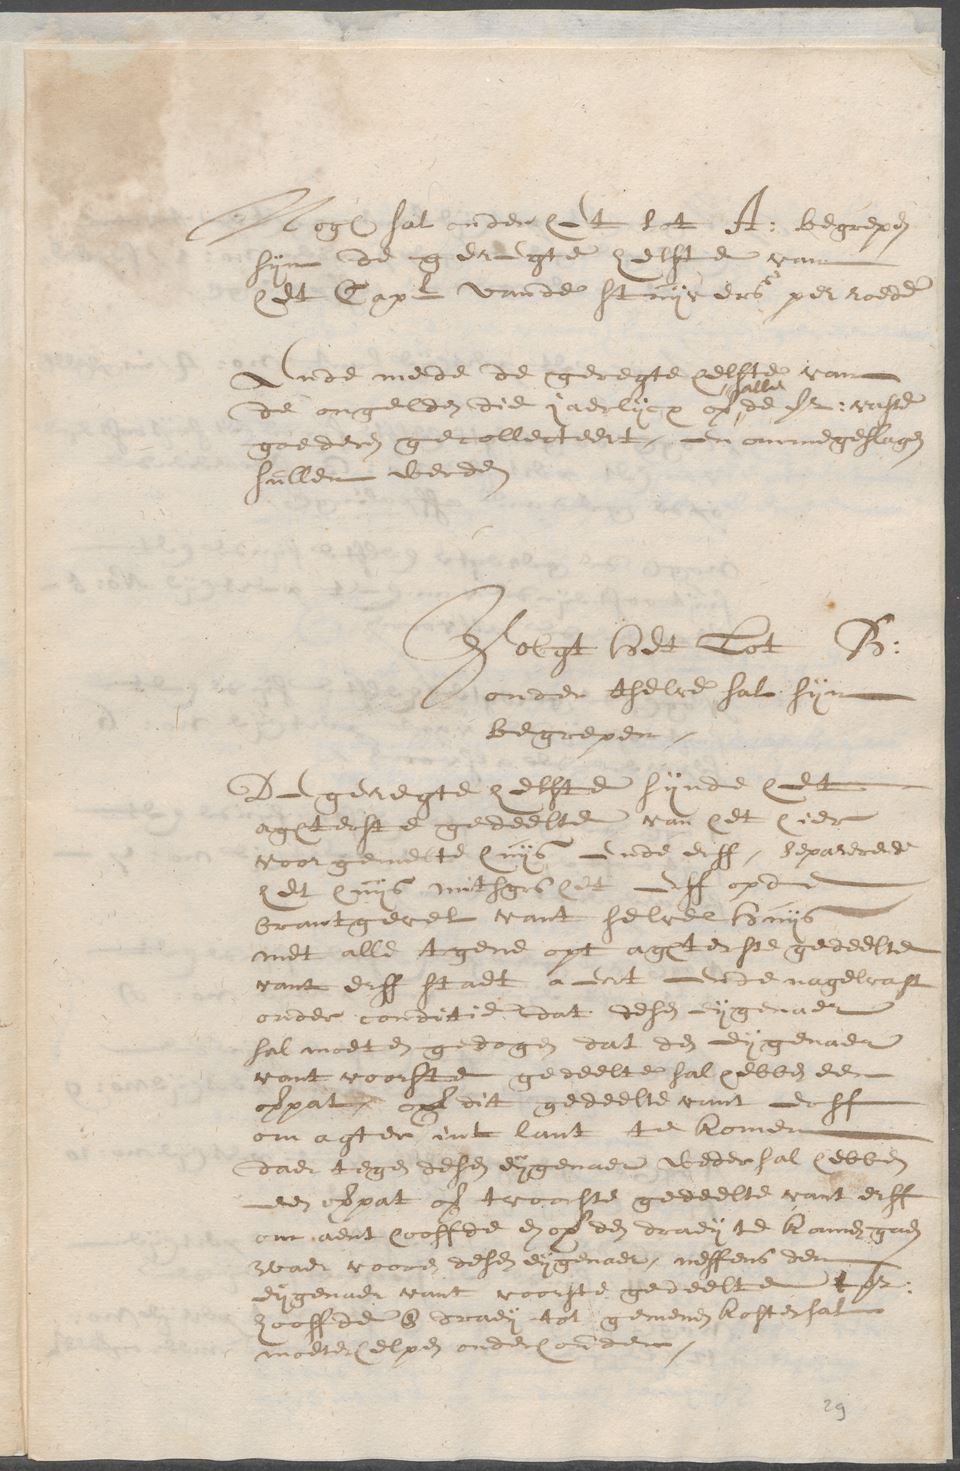 Nogh sal onder het lot A: begrepen
sijn de geregte helfte van
het Capl vande stuijvers per roede
Ende mede de geregte helfte van
de ongelden die jaerlycx op alle de vaste
goederen gecollecteert, en ommegeslagen
sullen werden
Volgt het Lot B:
onder t'selve sal sijn
begrepen,
De geregte helfte sijnde het
aghterste gedeelte van het hier
voor gemelte huijs ende erff,
het huijs mitsgrs het erff op de
vant selve huijs
met alle tgene opt aghterste gedeelte
vant erff staet aert ende nagelvast
onder conditie dat desen eijgenaer
sal moeten gedogen dat den eijgenaer
vant voorste gedeelte sal hebben een
oppat op dit gedeelte vant erff
om agter int lant te komen
daer tegen desen eijgenaer weder sal hebben
een oppat op tvoorste gedeelte vant erff
om aent hooffde en op den draeij te komen gaen
waer vooren desen eijgenaer, neffens den
eijgenaer vant voorste gedeelte
hooffde & draeij tot gemene koste sal
moeten helpen onderhouden,
29